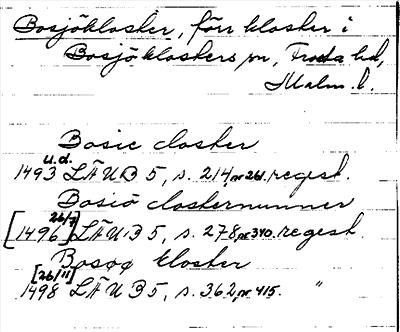 Bosjökloster, förr kloster i
Bosjöklosters sn, Frosta hd,
Malm. l.
Bosie closter
u.d.
1493 LÄUB 5, s. 214, nr 261. regest.
Bosiö closternunner
26/7
[1496] LÄUB 5, s. 278, nr 340. regest
Bosøø kloster
[26/11]
1498 LÄUB 5, s. 362, nr 415. "